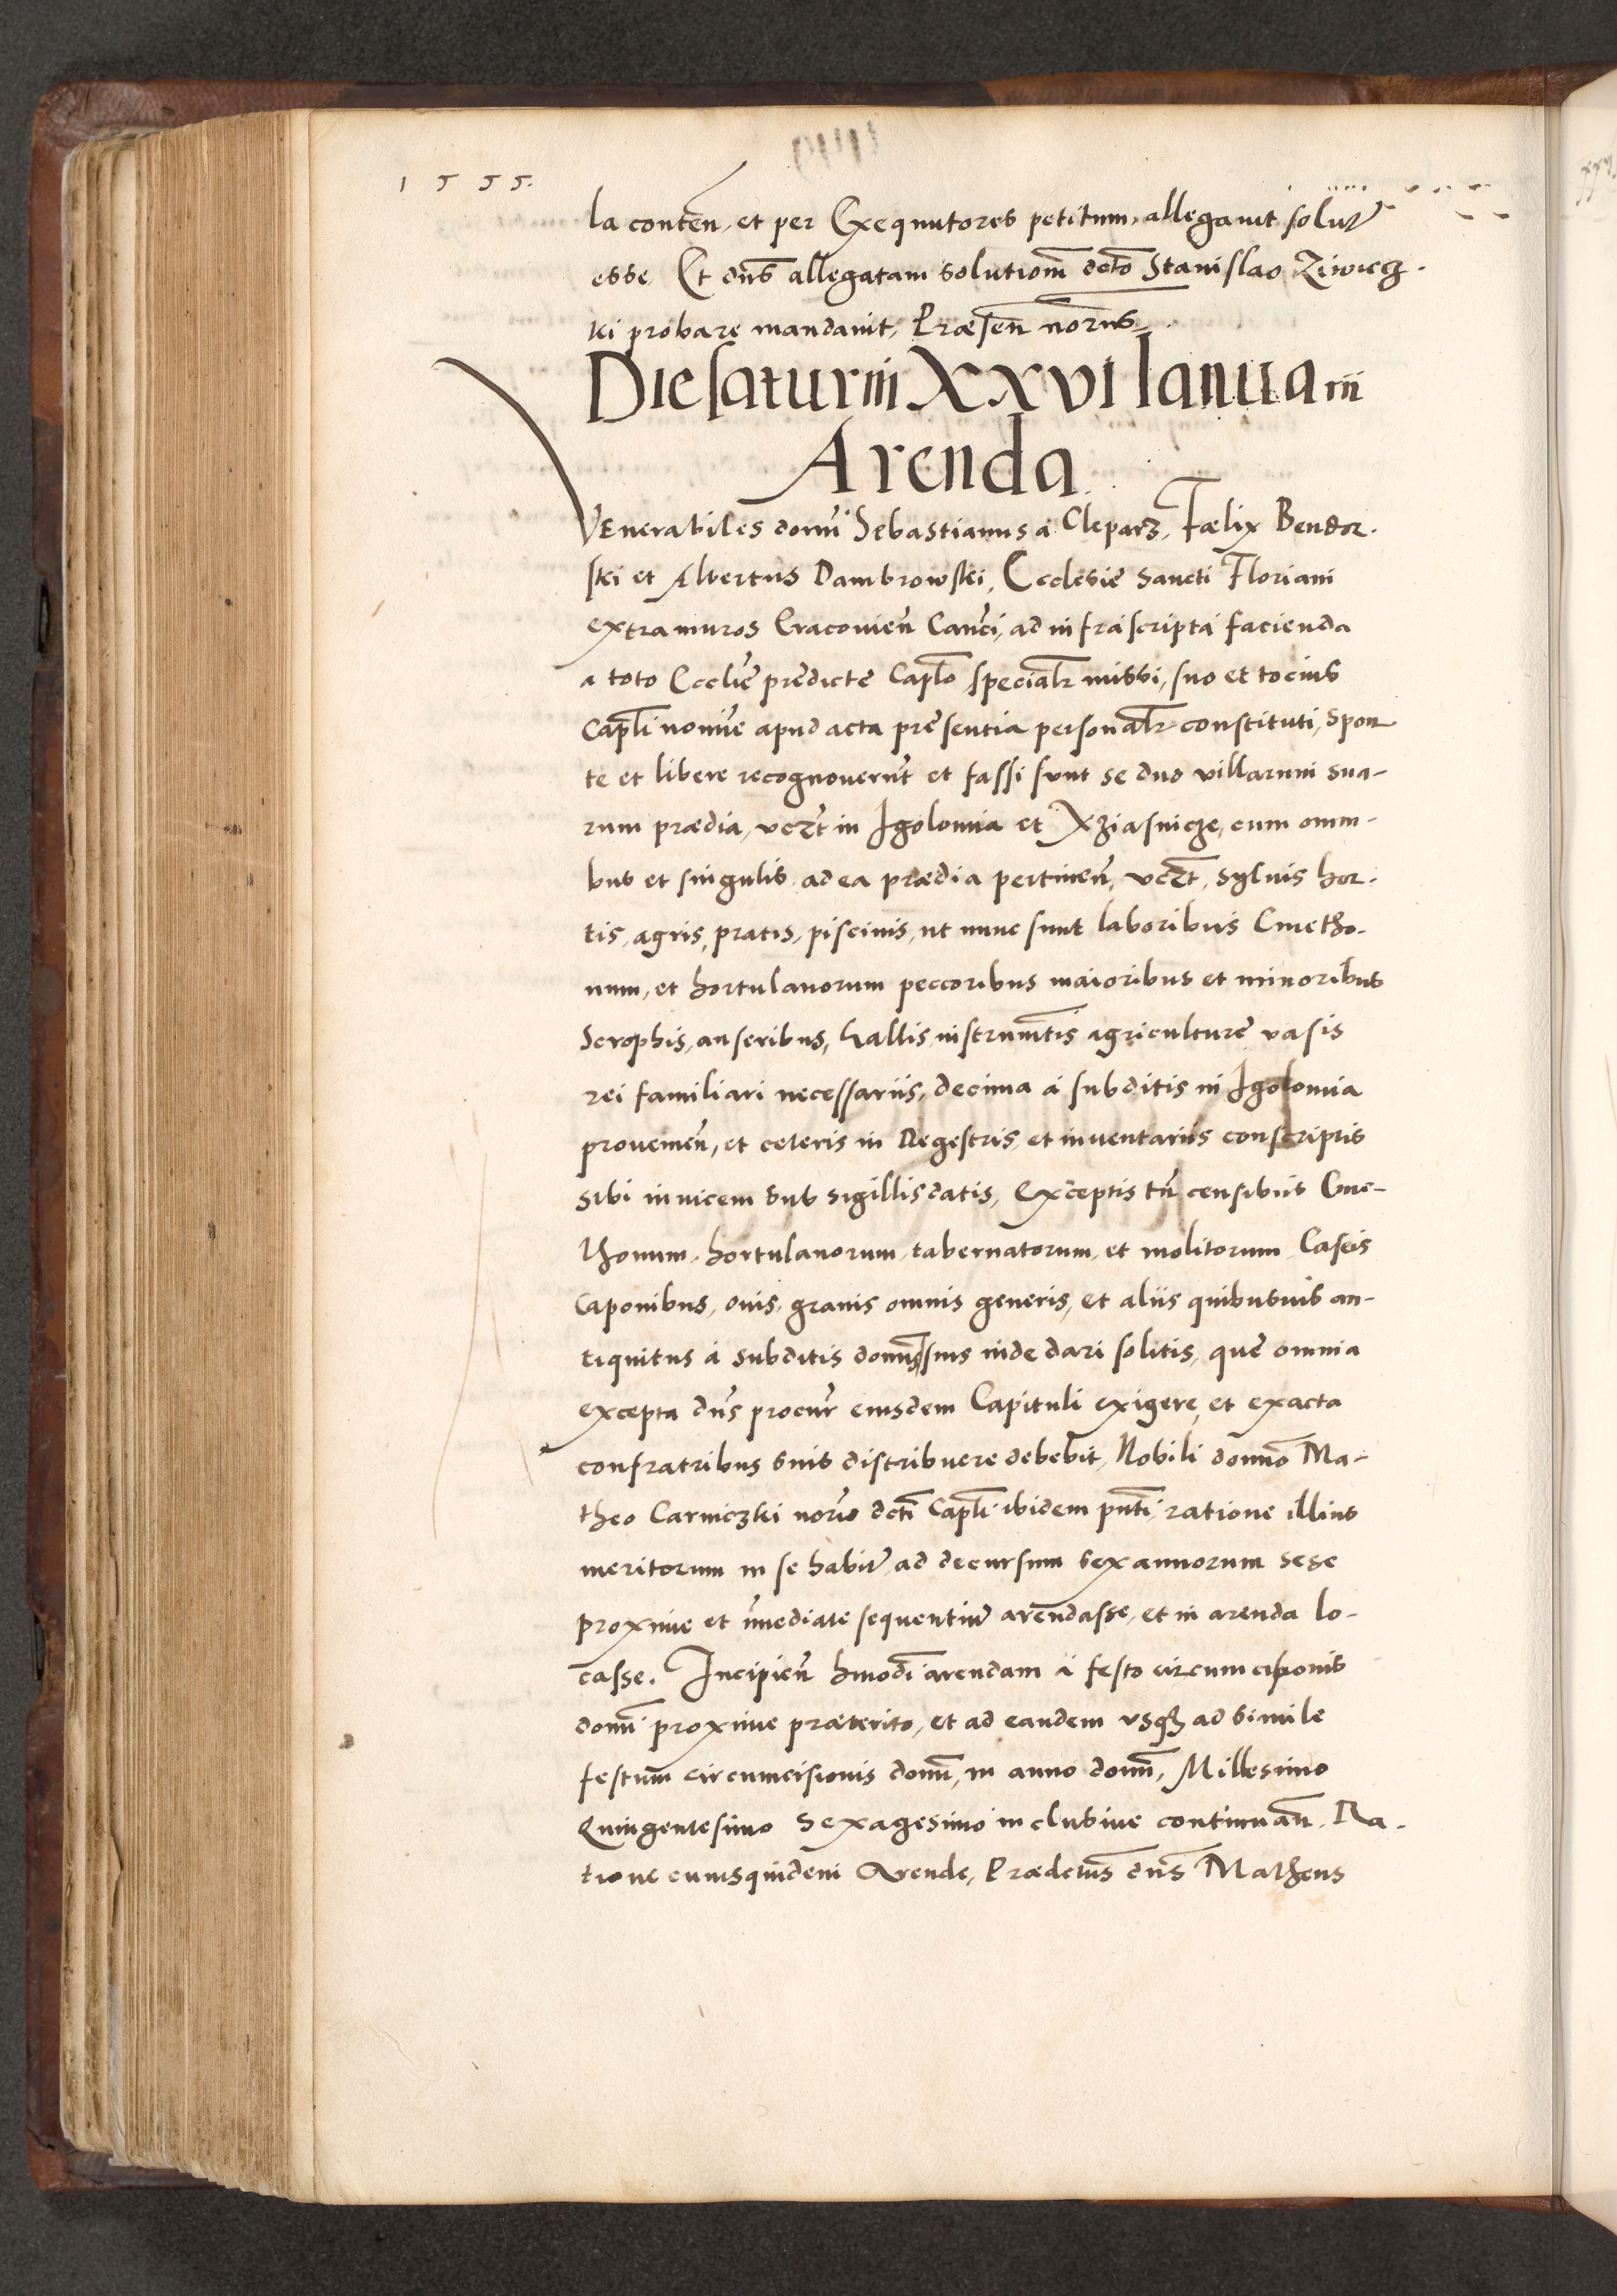 1555.
la conten̄, et per Exequutores petitum, allegavit solut̄
esse. Et dn̄s allegatam solutionē dctō Stanislao Ziwiecz
ki probare mandavit, Præsen̄ nōriis
Die saturni XXVI Ianuarii
Arenda
VEnerabiles domī Sebastianus à Cleparz, Fælix Bendor-
ski et Albertus Dambrowski, Ecclesie sancti Floriani
extra muros Cracovien̄ Canc̄i, ad infrascripta facienda
a toto Ecclīe predicte Caplō specialr̄ missi, suo et tocius
Caplī nomīe apud acta presentia personalr̄ constituti, spon
te et libere recognoverūt et fassi sunt se duo villarum sua-
rum prædia, vczt in Igolomia et Xziasnicze, cum omni-
bus et singulis ad ea prædia pertinen̄, vczt, sylvis hor-
tis, agris, pratis, piscinis, ut nunc sunt laboribus Cmetho-
num, et hortulanorum peccoribus maioribus et minoribus
Scrophis, anseribus, Gallis, instrumētis agriculture vasis
rei familiari necessariis, decima à subditis in Igolomia
provenien̄, et ceteris in Regestris et inventariis conscriptis
sibi invicem sub sigillis datis, Exceptis tn̄ censibus Cme-
thonum, hortulanorum, tabernatorum, et molitorum Caseis
Caponibus, ovis, granis omnis generis, et aliis quibusvis an-
tiquitus à subditis suis inde dari solitis, que omnia
excepta dn̄s procur̄ eiusdem Capituli exigere, et exacta
confratribus suis distribuere debebit, Nobili domīo Ma-
theo Carniczki nōrio dctī Caplī ibidem pn̄ti, ratione illius
meritorum in se habit̄, ad decursum sex annorum sese
proxime et īmediate sequentiū arendasse, et in arenda lo-
casse. Incipien̄ hmōdī arendam à festo circumcisionis
domī proxime præterito, et ad eandem usq̄ ad simile
festum circumcisionis domī, in anno domī, Millesimo
Quingentesimo sexagesimo inclusive continuan̄. Ra-
tione cuiusquidem Arende, Prædctus dn̄s Matheus